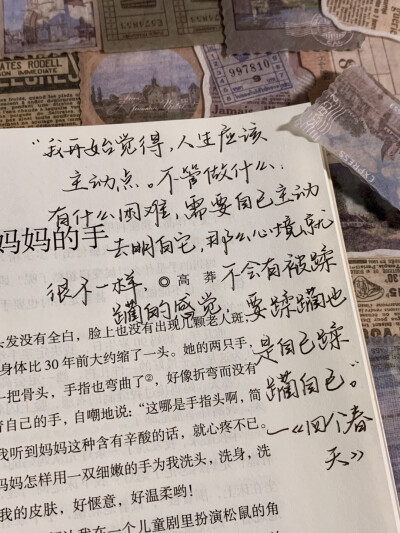 "我开始觉得,人生应该
主动点。不管做什么、
有什么困难,需要自己主动
去明白它,那么心境就
很不一样,不会有被蹂
躏的感觉,要蹂躏也
是自己蹂
躏自己。"
—《四个春
天》
妈妈的手
◎高莽
头发没有全白,脸上也没有出现几颗老人斑,
身体比30年前大约缩了一头。她的两只手,
一把骨头,手指也弯曲了②,好像折弯而没有
自己的手,自嘲地说:“这哪是手指头啊,简
我听到妈妈这种含有辛酸的话,就心疼不已。
妈妈怎样用一双细嫩的手为我洗头,洗身,洗
我的皮肤,好惬意,好温柔哟!
让我在一个儿童剧里扮演松鼠的角
RODELL
997810